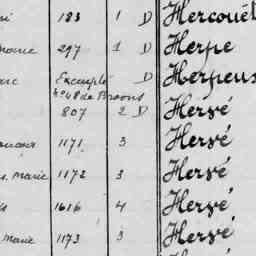 183 1 D Hercouët
Marie 247 1 D Herpe
Exempté D Herpeus
N° 48 de Broons
807 2 D Hervé
1171 3 Hervé
Marie 1172 3 Hervé
1616 4 Hervé
Marie 1173 3 Hervé